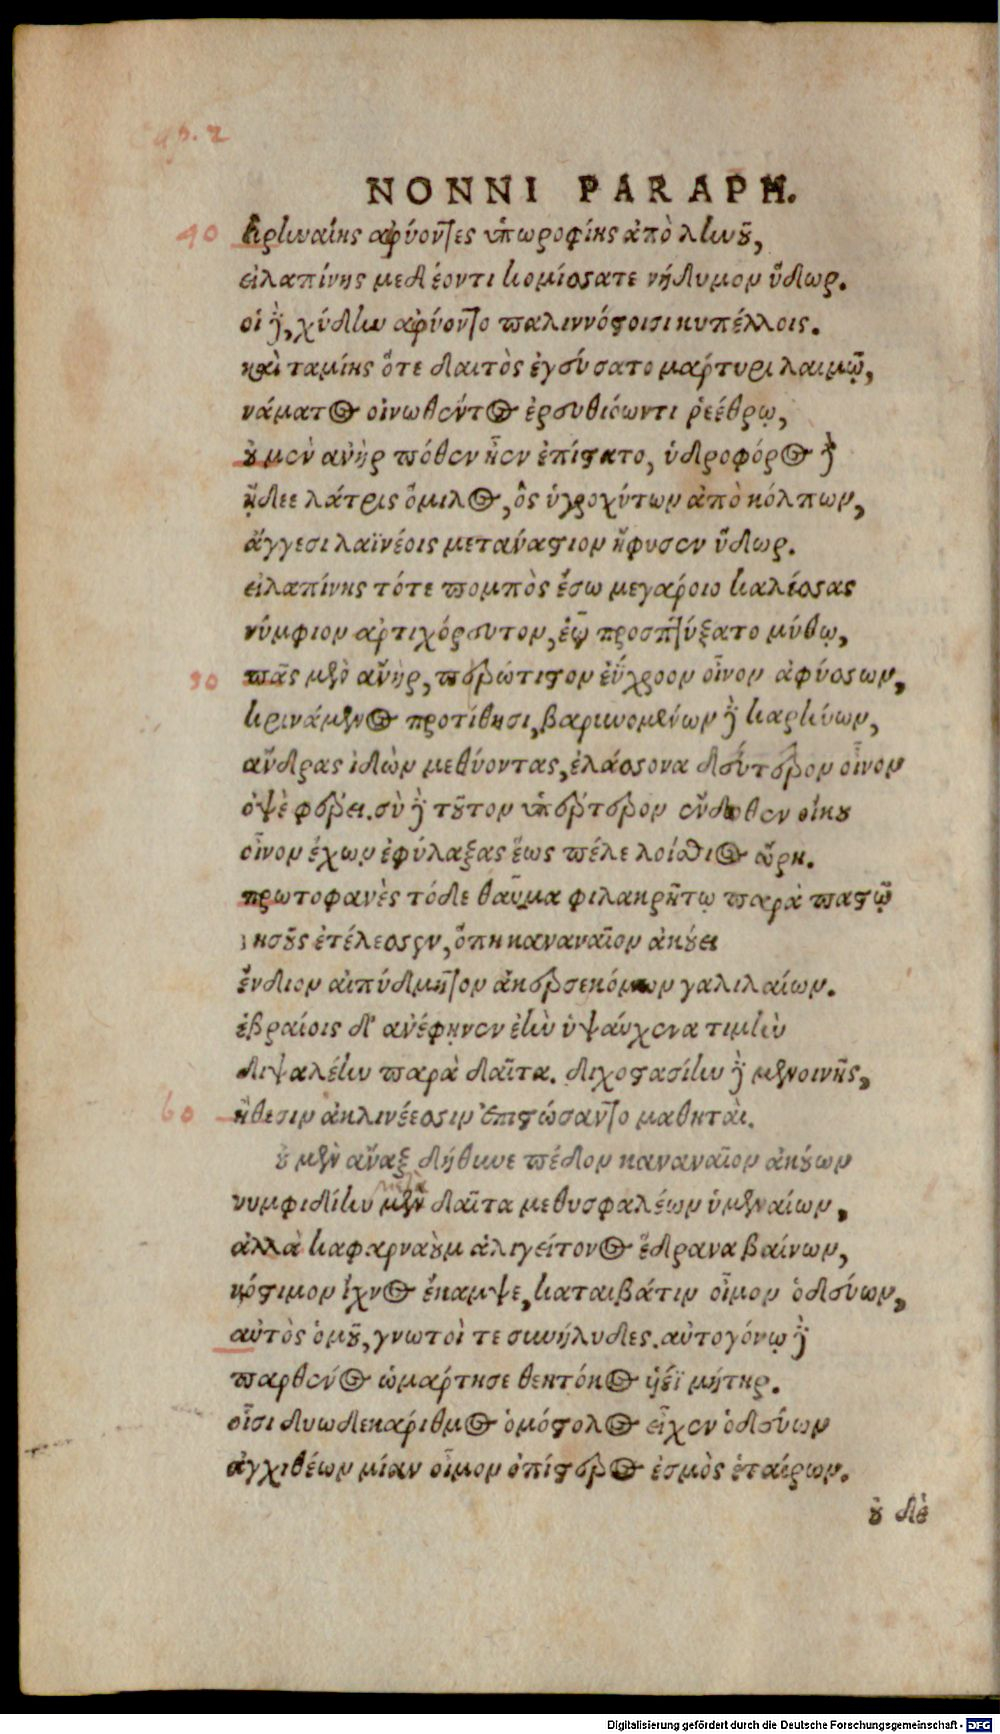 Cap. 2
NONNI PARAPH.
40 κρηναίης ἀφύοντες ὑπωροφίης ἀπὸ ληνοῦ,
εἰλαπίνης μεδέοντι κομίσσατε νήδυμον ὕδωρ.
οἱ δὲ, χύδην ἀφύοντο παλιννόστοισι κυπέλλοις.
καὶ ταμίης ὅτε δαιτὸς ἐγεύσατο μάρτυρι λαιμῷ,
νάματος οἰνωθέντος ἐρευθιόωντι ῥεέθρῳ,
οὐ μὲν ἀνὴρ πόθεν ἦεν ἐπίστατο, ὑδροφόρος δὲ
ᾔδεε λάτρις ὅμιλος, ὃς ὑγροχύτων ἀπὸ κόλπων,
ἄγγεσι λαϊνέοις μετανάστιον ἤφυσεν ὕδωρ.
εἰλαπίνης τότε πομπὸς ἔσω μεγάροιο καλέσσας
νύμφιον ἀρτιχόρευτον, ἑῷ προσπτύξατο μύθῳ,
50 πᾶς μὲν ἀνὴρ, πρώτιστον ἐΰχροον οἶνον ἀφύσσων,
κρινάμενος προτίθησι, βαρυνομένων δὲ καρήνων,
ἄνδρας ἰδὼν μεθύοντας, ἐλάσσονα δεύτερον οἶνον
ὀψὲ φέρει. σὺ δὲ τοῦτον ὑπέρτερον ἔνδοθεν οἴκου
οἶνον ἔχων ἐφύλαξας ἕως πέλε λοίσθιος ὥρη.
πρωτοφανὲς τόδε θαῦμα φιλακρήτῳ παρὰ παστῷ
ιησοῦς ἐτέλεσσεν, ὅπη καναναῖον ἀκούει
ἔνδιον αἰπύδμητον ἀκερσεκόμων γαλιλαίων.
ἑβραίοις δ' ἀνέφηνεν ἑὴν ὑψαύχενα τιμὴν
διψαλέην παρὰ δαῖτα. διχοστασίην δὲ μενοινῆς,
60 ἤθεσιν ἀκλινέεσσιν ἐπιστώσαντο μαθηταί.
οὐ μὲν ἄναξ δήθυνε πέδον καναναῖον ἀκούων
νυμφιδίην μὲν δαῖτα μεθυσφαλέων ὑμεναίων,
ἀλλὰ καφαρναοὺμ ἁλιγείτονος ἕδρανα βαίνων,
νόστιμον ἴχνος ἔκαμψε, καταιβάτιν οἶμον ὁδεύων,
αὐτὸς ὁμοῦ, γνωτοί τε συνήλυδες. αὐτογόνῳ δὲ
παρθένος ὡμάρτησε θεητόκος υἱέϊ μήτηρ.
οἷσι δυωδεκάριθμος ὁμόστολος εἶχεν ὁδεύων
ἀγχιθέων μίαν οἶμον ὀπίστερος ἑσμὸς ἑταίρων.
οὐ δὲ
Digitalisierung gefördert durch die Deutsche Forschungsgemeinschaft - DFG